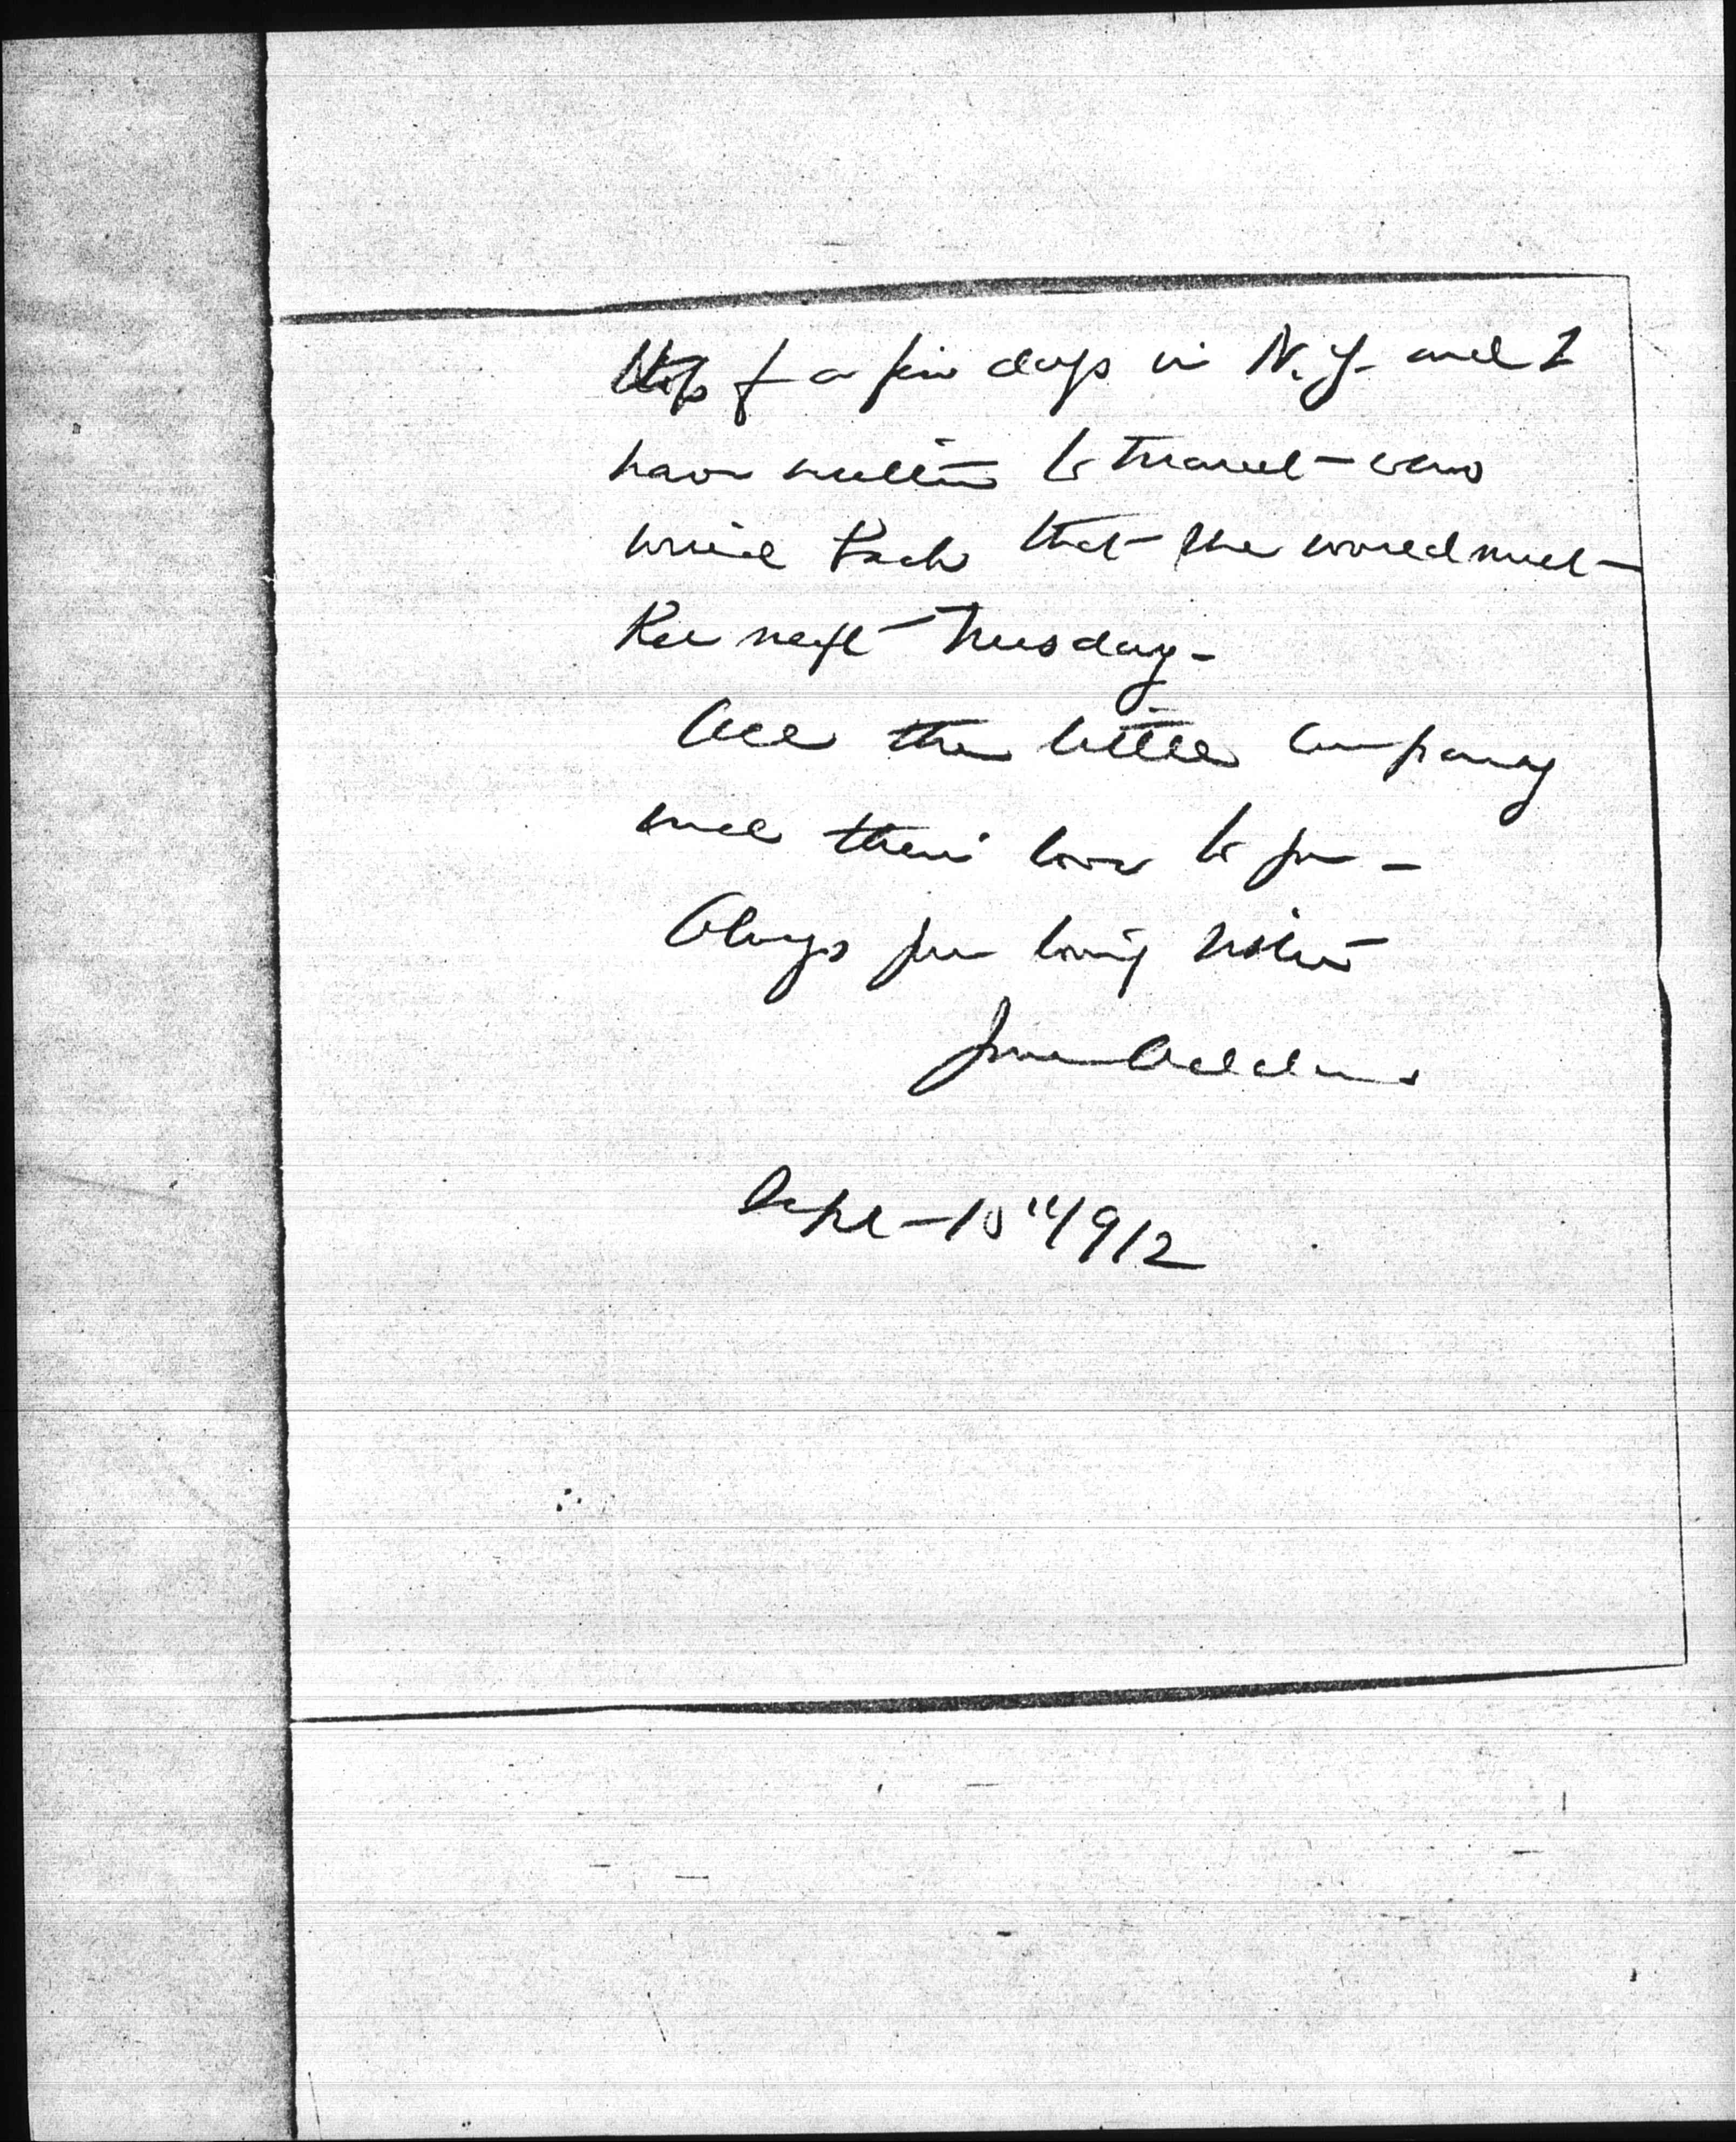 stop for a few days in N.Y. and I
have written to Harriet who
wired back that she would meet
her next Tuesday -
All the little company
send their love to you -
Always your loving sister
Jane Addams
Sept - 10" 1912